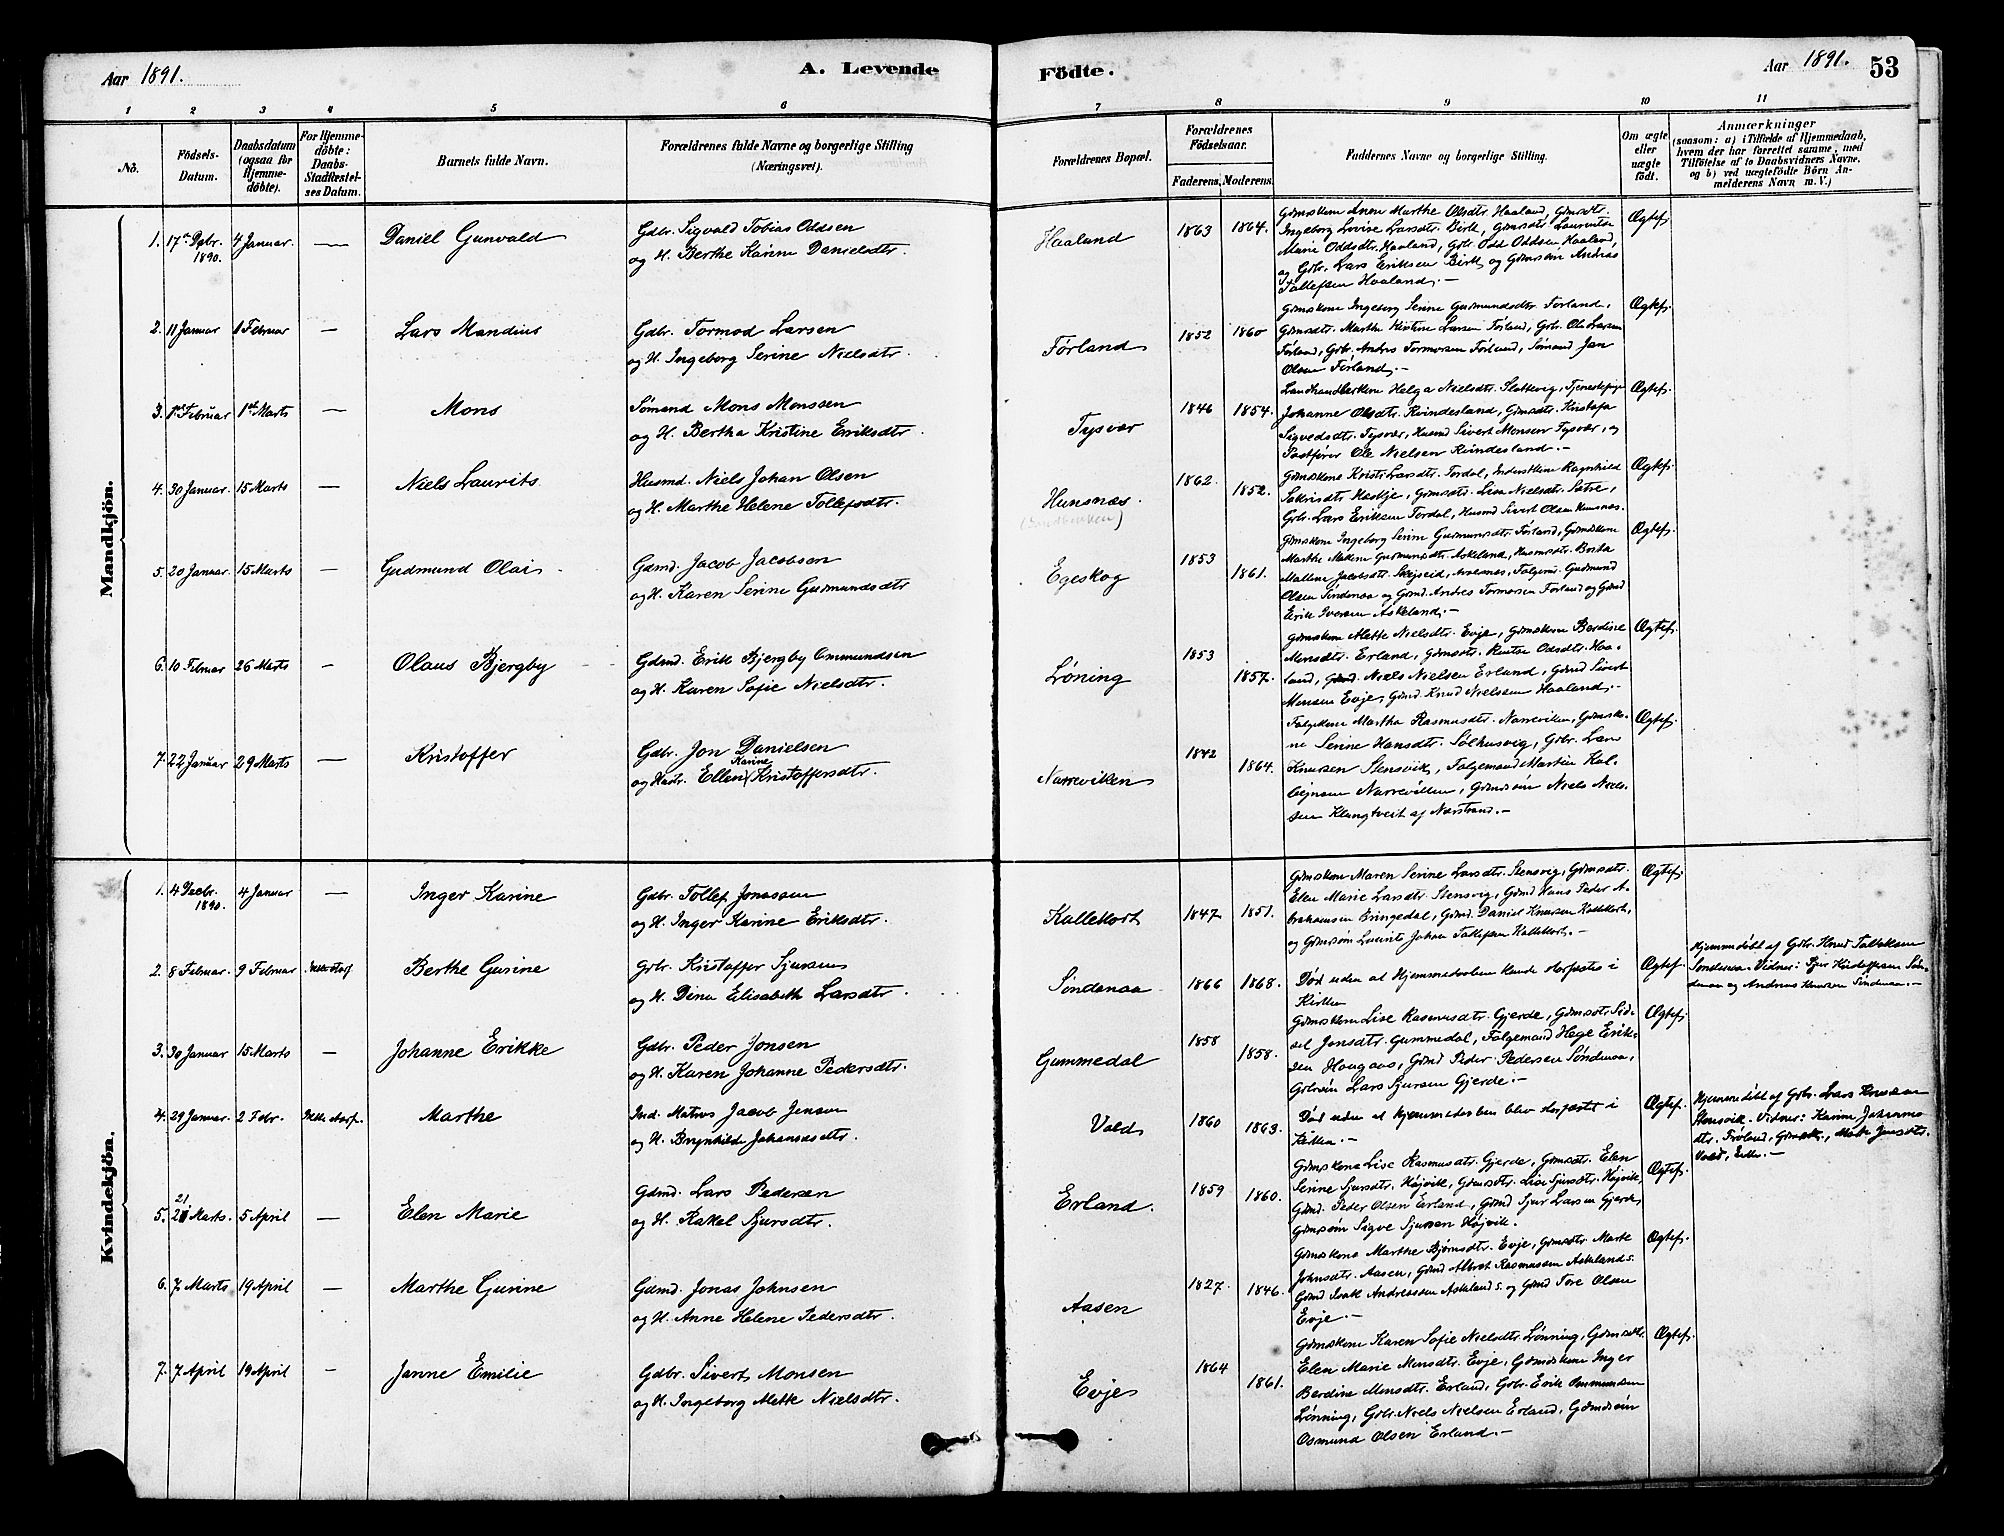 Aar 1891.
A. Levende
Födte.
Aar 1891.
53
1 2 3 4 5 6 7 8 9 10 11
No.
Födsels-
Datum.
Daabsdatum
(ogsaa for
Hjemme-
døbte).
For Hjemme-
døbte:
Daabs-
Stadfæstel-
ses Datum.
Barnets fulde Navn.
Forældrenes fulde Navne og borgerlige Stilling
(Næringsvei).
Forældrenes Bopæl.
Forældrenes
Födselsaar.
Faderens. Moderens.
Faddernes Navne og borgerlige Stilling.
Om ægte
eller
uægte
født.
Anmærkninger
(saasom: a) i Tilfælde af Hjemmedaab,
hvem der har forrettet samme, med
Tilföielse af to Daabsvidners Navne,
og b) ved uægtefödte Börn An-
melderens Navn m. V.)
Mandkjön.
1. 17de Dcbr. 1890. 4 Januar. — Daniel Gunvald
Gdbr. Sigvald Tobias Oddsen
og H. Berthe Karine Danielsdtr.
Haaland 1863 1864.
Gdmskone Anne Marthe Olsdtr. Haaland, Gdmsdtr.
Ingeborg Lovise Larsdtr. Birk, Gdmsdtr. Lauritse
Marie Oddsdtr. Haaland, Gbr. Odd Oddsen Haaland,
og Gbr. Lars Eriksen Birk og Gdmssøn Andreas
Tollefsen Haaland. —
Ægtef.
2. 11 Januar 1 Februar — Lars Mandius
Gdbr. Tormod Larsen
og H. Ingeborg Serine Nielsdtr.
Førland 1852 1860
Gdmskone Ingeborg Serine Gudmundsdtr. Førland,
Gdmsdtr. Marthe Kistine Larsen Førland, Gbr. Ole Larsen
Førland, Gbr. Andres Tormodsen Førland, Sømand Jan
Olsen Førland. —
Ægtef.
3. 1ste Februar 1ste Marts — Mons
Sømand Mons Monssen
og H. Bertha Kristine Eriksdtr.
Tysvær 1846 1854.
Landhandlerkone Helga Nielsdtr. Slattevig, Tjenestepige
Johanne Olsdtr. Kvindesland, Gdmsdtr. Kristofa
Sigvedsdtr. Tysvær, Husmd Sivert Monsen Tysvær, og
Postfører Ole Nielsen Kvindesland. —
Ægtef.
4. 30 Januar. 15 Marts — Niels Laurits
Husmd. Niels Johan Olsen
og H. Marthe Helene Tollefsdtr.
Hunsnæs. 1862. 1852.
Gdmskone Kristi Larsdtr. Tordal, Ragnhild
Gdmsdtr. Lisa Nielsdtr. Sætre,
Gbr. Lars Eriksen Tordal, Husmd Sivert Olsen Hunsnæs.
Ægtef.
5. 20 Januar. 15 Marts — Gudmund Olai
Gdmd. Jacob Jacobsen
og H. Karen Serine Gudmundsdtr
Egeskog 1853 1861.
Gdmskone Ingeborg Serine Gudmundsdtr. Førland, Gdmskone
Marthe Malene Gudmundsdtr. Askeland, Husmsdtr. Berta
Malene Jacobsdtr. Skeiseid, Folgemd. Gudmund
Olsen Søndenaa og Gdmd. Andres Tormodsen Førland og Gdmd
Erik Iversen Askeland. —
Ægtef.
6. 10 Februar 26 Marts — Olaus Bjergby
Gdmd. Erik Bjergby Ommundsen
og H. Karen Sofie Nielsdtr.
Løning 1853 1857.
Gdmskone Mette Nielsdtr. Evje, Gdmskone Berdine
Monsdtr. Erland, Gdmsdtr. Oddsdtr. Haa-
land, Gdmd Niels Nielsen Erland, Gdmd Sivert
Monsen Evje, Gdmd. Knud Nielsen Haaland. —
Ægtef.
7. 22 Januar 29 Marts — Kristoffer
Gdbr. Jon Danielsen
Karine
og Hustr. Ellen Kristoffersdtr.
Narreviken 1842 1864.
Folgekone Martha Rasmusdtr. Narreviken, Gdmsko-
ne Serine Hansdtr. Sølhusvig, Gbr. Lars
Knutsen Stensvik, Folgemand Martin Kol-
bejnsen Narreviken, Gdmdssøn Niels Niel-
sen Klungtveit af Nærstrand. —
Ægtef.
Kvindekjön.
1. 4 Decbr. 1890. 4 Januar — Inger Karine
Gdbr. Tollef Jonassen
og H. Inger Karine Eriksdtr.
Kallekort 1847 1851.
Gdmskone Maren Serine Larsdtr. Stensvig, Gdmsdtr.
Elen Marie Larsdtr. Stensvig, Gdmd Hans Peder A-
brahamsen Bringedal, Gdmd. Daniel Knutsen Kallekort,
og Gdmssøn Laurits Johan Tollefsen Kallekort. —
Ægtef.
2. 8 Februar. 9 Februar Berthe Gurine
Gbr. Kristoffer Sjursen
og H. Dina Elisabeth Larsdtr.
Søndenaa 1866 1868.
Død uden at Hjemmedaaben kunde stadfæstes i
Kirken
Ægtef.
Hjemmedøbt af Gbr. Knud
Søndenaa. Vidner: Sjur Kristoffersen Søn-
denaa og Andreas Knutsen Søndenaa. —
3. 30 Januar 15 Marts — Johanne Erikke
Gdbr. Peder Jonsen
og H. Karen Johanne Pedersdtr.
Gummedal 1858 1858.
Gdmskone Lise Rasmusdtr. Gjerde, Gdmsdtr. Sid-
sel Jonsdtr. Gummedal, Folgemand Hege Erik-
sen Haugaas, Gdmd Peder Pedersen Søndenaa,
Gdbrsøn Lars Sjursen Gjerde. —
Ægtef.
4. 29 Januar. 2 Febr. Marthe
Ind. Matros Jacob Jensen
og H. Brynhild Johannesdtr.
Vold 1860 1863.
Død uden at Hjemmedaaben blev stadfæstet i
Kirken. —
Ægtef.
Hjemmedøbt af Gbr. Lars Knutsen
Stensvik. Vidner: Karine Johannes-
dtr. Frøland, Mette Jensdtr.
Vold, Enke. —
5. 21 Marts. 5 April — Elen Marie
Gdmd. Lars Pedersen
og H. Rakel Sjursdtr.
Erland. 1859 1860.
Gdmskone Lise Rasmusdtr. Gjerde, Gdmsdtr. Elen
Serine Sjursdtr. Højvik, Gdmsdtr. Lise Sjursdtr. Højvik,
Gdmd. Peder Olsen Erland, Gdmd Sjur Larsen Gjerde,
Gdmssøn Sigve Sjursen Højvik.
Ægtef.
6. 7 Marts 19 April — Marthe Gurine
Gdmd. Jonas Johnsen
og H. Anne Helene Pedersdtr.
Aasen 1827. 1846.
Gdmskone Marthe Bjørnsdtr. Evje, Gdmsdtr. Marte
Johnsdtr. Aasen, Gdmd Albret Rasmussen Askeland s.
Gdmd Isak Andreassen Askeland s. og Gdmd Tore Olsen
Evje. —
Ægtef.
7. 7 April 19 April — Janne Emilie
Gdbr. Sivert Monsen
og H. Ingeborg Mette Nielsdtr.
Evje 1864 1861.
Gdmskone Karen Sofie Nielsdtr. Lønning, Gdmsdtr.
Elen Marie Monsdtr. Evje, Gdmdskone Inger
Berdine Monsdtr. Erland, Gbr. Erik Ommundsen
Lønning, Gbr. Niels Nielsen Erland, Gdmdssøn
Osmund Olsen Erland. —
Ægtef.